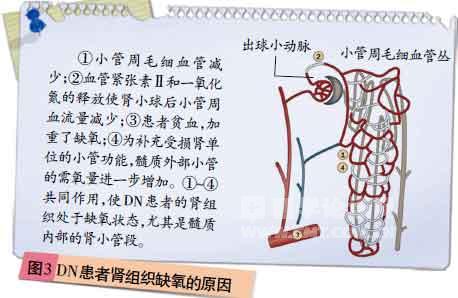 ①小管周毛细血管减
少;②血管紧张素Ⅱ和一氧化
氮的释放使肾小球后小管周
血流量减少;③患者贫血,加
重了缺氧;④为补充受损肾单
位的小管功能,髓质外部小管
的需氧量进一步增加。①~④
共同作用,使DN患者的肾组
织处于缺氧状态,尤其是髓质
内部的肾小管段。
出球小动脉
小管周毛细血管丛
②
①
④
③
图3 DN患者肾组织缺氧的原因